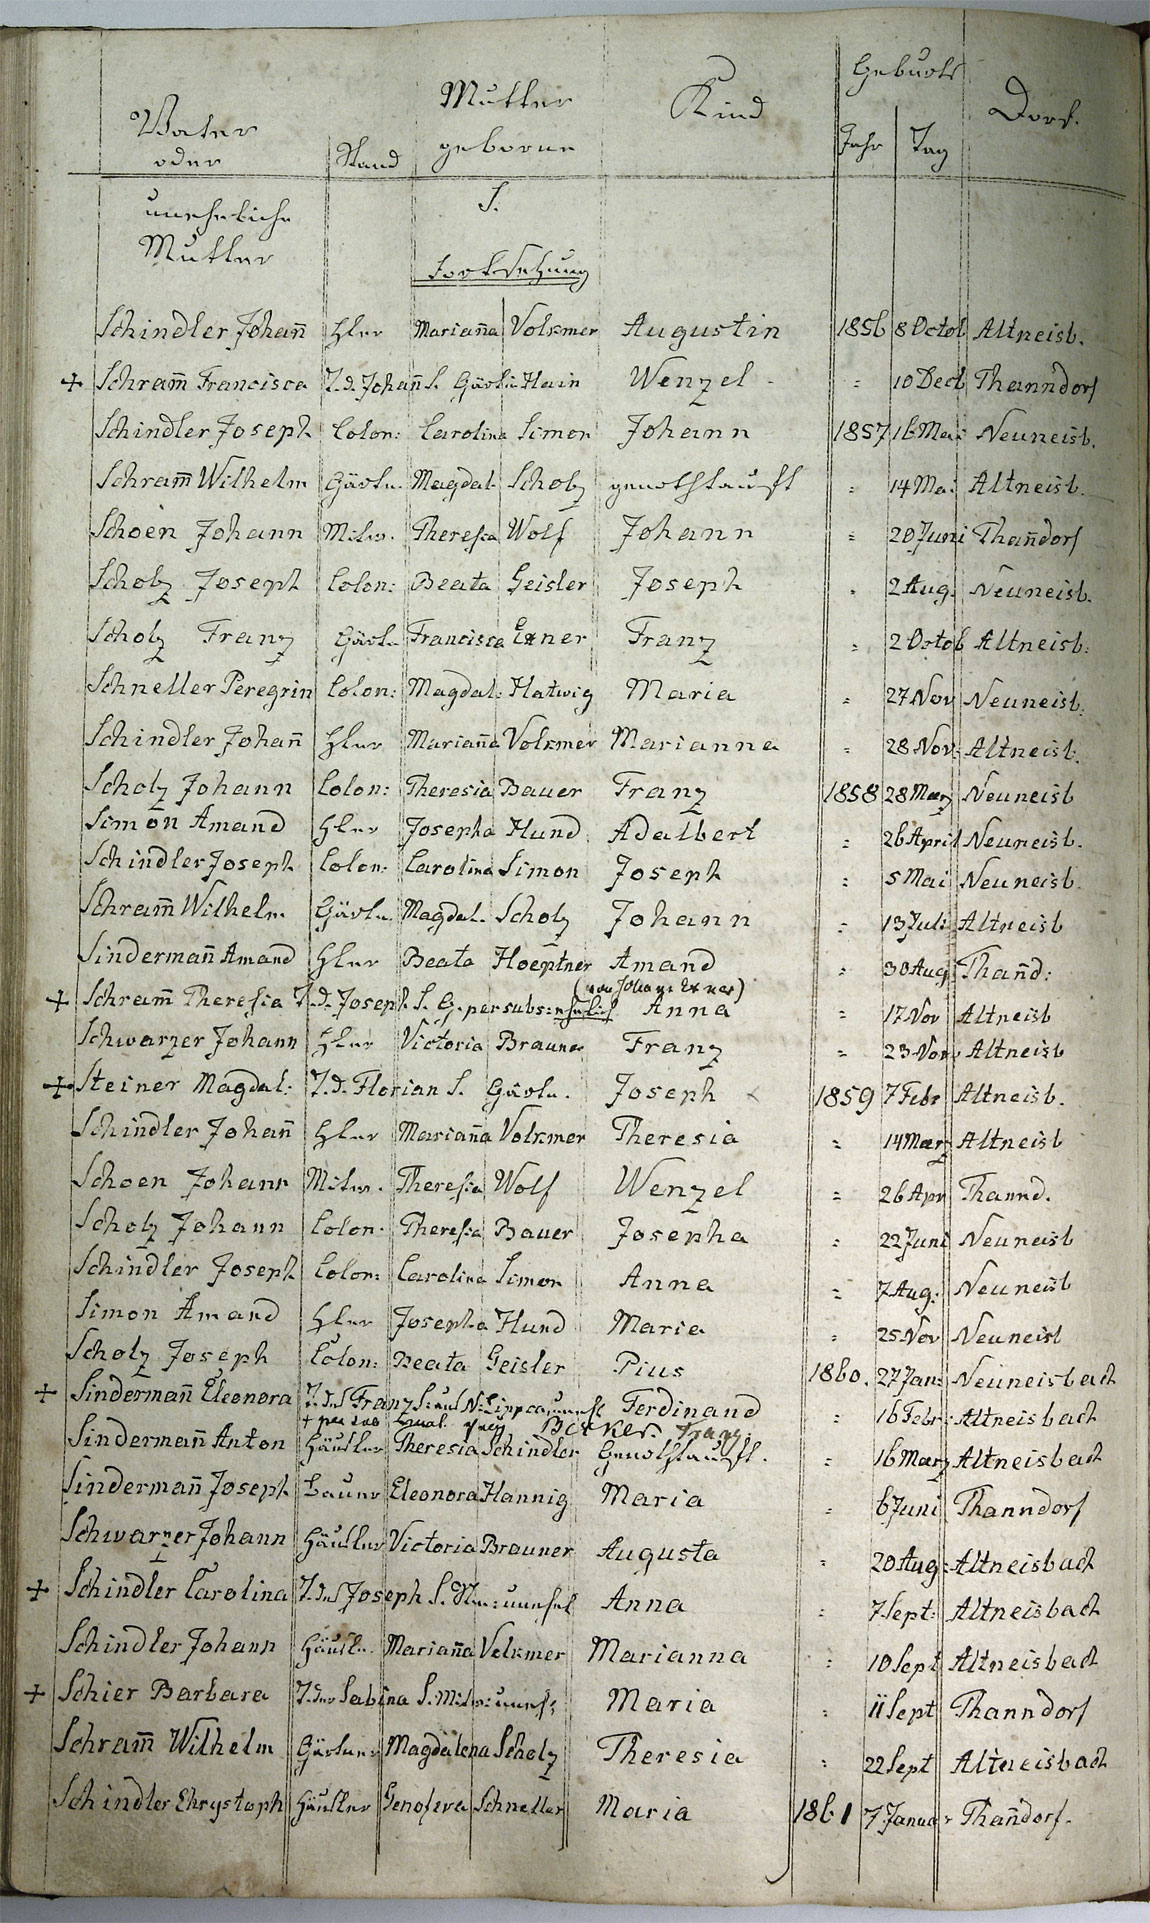 Vater
oder
unehrliche
Mutter
Stand
Mutter
geborne
Kind
Geburts
Jahr Tag
Dorf.
S.
Fortsetzung
Schindler Johañ Hler Mariaña Volkmer Augustin 1856 8 Octob Altneisb.
+ Schram̃ Francisca T. d. Johañ S. Gärtn Hain Wenzel - = 10 Decb Thanndorf
Schindler Joseph Colon: Carolina Simon Johann 1857 16 Mai Neuneisb.
Schram̃ Wilhelm Gärtn. Magdal. Scholz genothtauft = 14 Mai Altneisb.
Schoen Johann Mitw. Theresia Wolf Johann = 20 Juni Thañdorf
Scholz Joseph Colon: Beata Geisler Joseph = 2 Aug. Neuneisb.
Scholz Franz Gärtn Francisca Exner Franz = 2 Octob Altneisb:
Schneller Peregrin Colon: Magdal: Hatwig Maria = 27 Nov Neuneisb.
Schindler Johañ Hler Mariaña Volkmer Marianna = 28 Nov: Altneisb.
Scholz Johann Colon: Theresia Bauer Franz 1858 28 Mærz Neuneisb
Simon Amand Hler Josepha Hund Adalbert = 26 April Neuneisb.
Schindler Joseph Colon: Carolina Simon Joseph = 5 Mai Neuneisb.
Schram̃ Wilhelm Gärtn. Magdal. Scholz Johann = 13 Juli Altneisb
Sindermañ Amand Hler Beata Hoeptner Amand = 30 Aug Thañd:
(von Johann Exner)
+ Schram̃ Theresia T. d. Joseph S. G. per subs: ehelich Anna = 17 Nov Altneisb
Schwarzer Johann Hler Victoria Brauner Franz = 23 Nov. Altneisb
+ Steiner Magdal: T. d. Florian S. Gärtn. Joseph 1859 7 Febr Altneisb.
Schindler Johañ Hler Mariaña Volkmer Theresia = 14 Mærz Altneisb
Schoen Johann Mitw. Theresia Wolf Wenzel = 26 Apr Thannd.
Scholz Johann Colon. Theresia Bauer Josepha = 22 Juni Neuneisb
Schindler Joseph Colon: Carolina Simon Anna = 7 Aug: Neuneisb
Simon Amand Hler Josepha Hund Maria = 25 Nov Neuneisb
Scholz Joseph Colon: Beata Geisler Pius 1860. 27 Jan: Neuneisbach
+ Sindermañ Eleonora T. des Franz S: aus N: Lippca unehl Ferdinand = 16 Febr: Altneisbach
+ per sub Franz
Sindermañ Anton Häusler Theresia Schindler Genothtauft. = 16 Mærz Altneisbach
Sindermañ Joseph Bauer Eleonora Hannig Maria = 6 Juni Thanndorf
Schwarzer Johann Häusler Victoria Brauner Augusta = 20 Aug: Altneisbach
+ Schindler Carolina T. des Joseph S. unehel Anna = 7 Sept: Altneisbach
Schindler Johann Häusl. Mariaña Volkmer Marianna = 10 Sept Altneisbach
+ Schier Barbara T. der Sabina S. Mitw: unehl: Maria = 11 Sept Thanndorf
Schram̃ Wilhelm Gärtner Magdalena Scholz Theresia = 22 Sept Altneisbach
Schindler Chrystoph Häusler Genofeva Schneller Maria 1861 7 Januar Thañdorf.